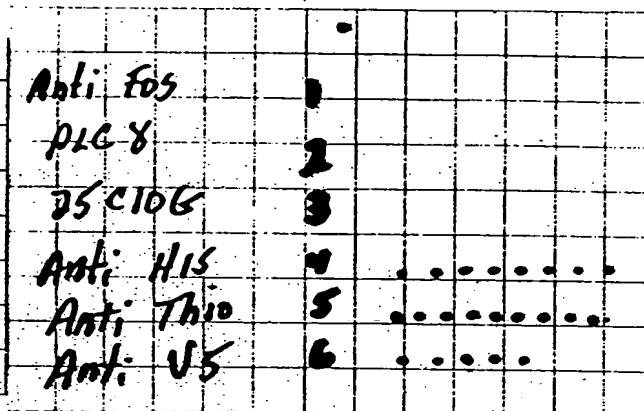 Anti Fos 1
PLC γ 2
25C10G 3
Anti HIS 4
Anti Thio 5
Anti V5 6